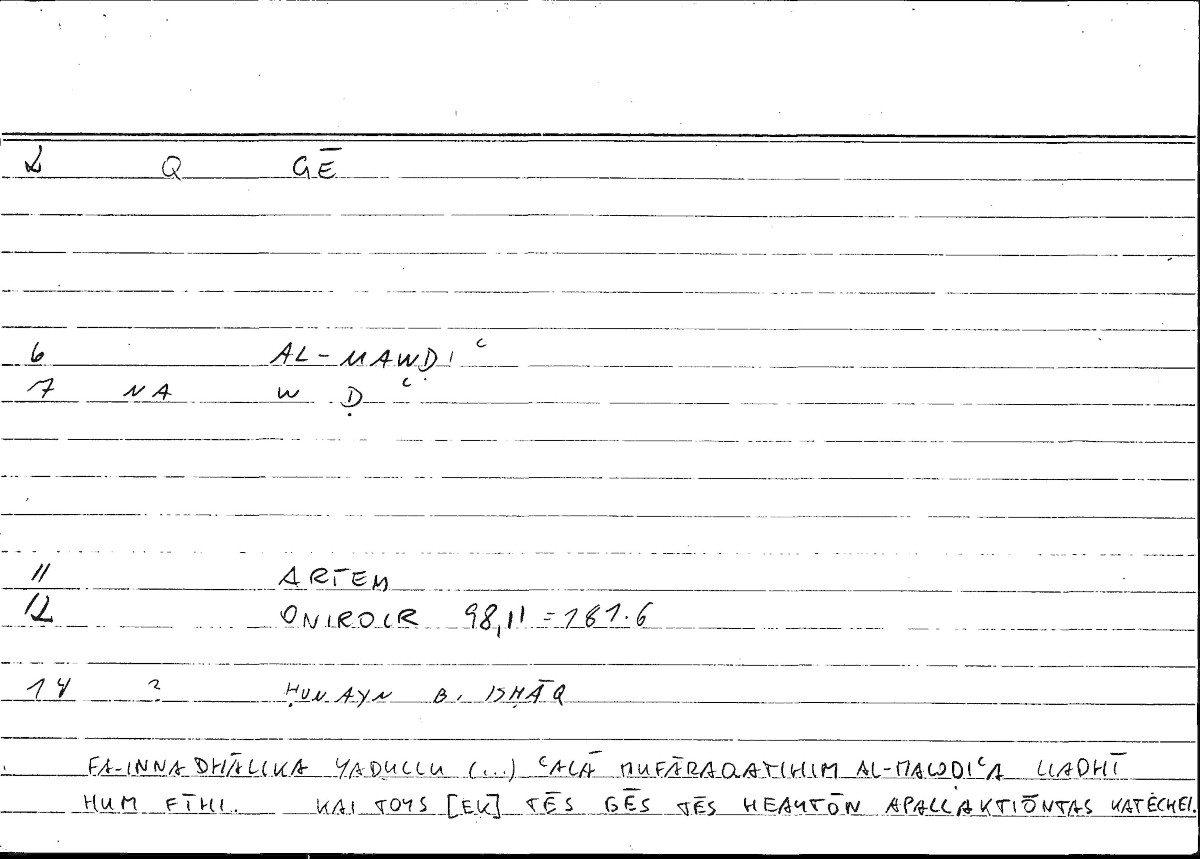 2 Q GĒ
6 AL-MAWḌIʿ
7 NA W Ḍ ʿ
11 ARTEM
12 ONIROCR 98,11 = 181.6
14 ? ḤUNAYN B. ISḤĀQ
FA-INNA DHĀLIKA YADULLU (...) ʿALĀ MUFĀRAQATIHIM AL-MAWḌIʿA LLADHĪ
HUM FĪHI. KAI TOYS [EK] TĒS GĒS TĒS HEAYTŌN APALLAKTIŌNTAS KATECHEI.